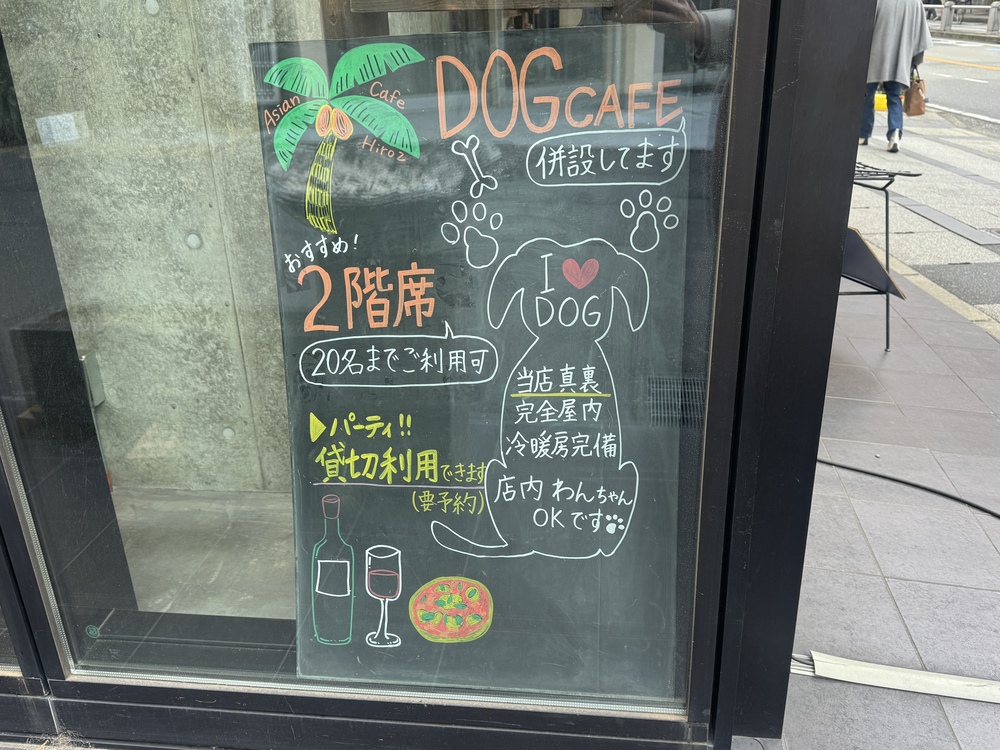 Asian
Cafe
Hiroz
DOG CAFE
併設してます
おすすめ!
2階席
20名までご利用可
パーティ!!
貸切利用できます
(要予約)
I
DOG
当店真裏
完全屋内
冷暖房完備
店内 わんちゃん
OKです